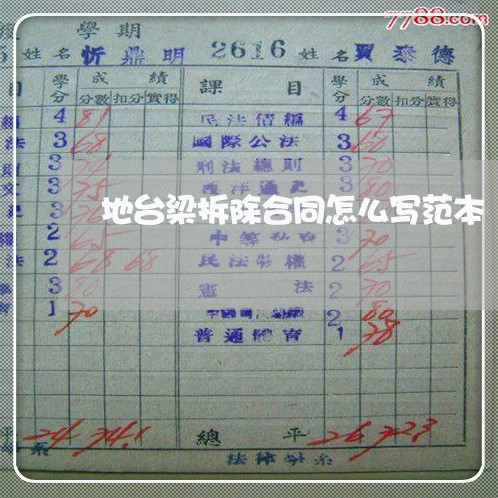 7788.com
學期
5 姓名 忻鼎明 2616 姓名 賈泰德
目 學分 成績 課目 學分 成績
分數 扣分 實得 分數 扣分 實得
4 81 民法債編 4 67
法 3 68 國際公法 3 60
則 3 刑法總則 3 70
3 75 西洋通史 3 80
地台梁拆除合同怎么写范本
2 65 3 70
法 2 68 68 民法物權 2 65
3 80 憲法 2 70
1 70 2 80
普通體育 1 78
平 24 74.1 總平 26 72.3
系 法律學系